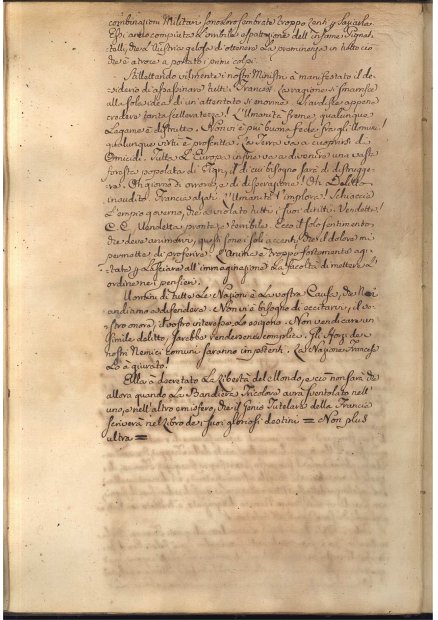 combinazioni Militari sono loro sembrate troppo lenti p saziarla
Essi anno compiuta l'orribile aspirazione dell'infame Pigna-
telli, che l'Austria gelosa di ottenere la preminenza in tutto ciò
che è atroce a portato i primi colpi.
Stilettando vilmente i nostri Ministri à manifestato il de-
siderio di assassinare tutti i Francesi. La ragione si smarrisce
alla sola idea di un attentato sì enorme. Si ardisce appena
credere tanta scelleratezza! L'Umanità freme qualunque
Legame è distrutto. Non vi è più buona fede fra gli Uomini!
qualunque virtù è proscritta. La Terra va a cuoprirsi di
Omicidi. Tutta l'Europa infine va a divenire una vasta
foresta popolata di Tigri, il di cui bisogno sarà di distrugge-
re. Oh giorno di orrore, e di disperazione! Oh Delitto
inaudito! Francia agiti! l'Umanità t'implora! Schiaccia
l'empio governo, che à violato tutti i suoi diritti. Vendetta!
Vendetta pronta, e terribile. Ecco il solo sentimento,
che deve animarvi, questi sono i soli accenti, che il dolore mi
permette di proferire. L'anima è troppo fortemente agi-
tata p lasciare all'immaginazione la facoltà di mettere a
ordine nei pensieri.
Uomini di tutte le Nazioni è la vostra Causa, che Noi
andiamo a difendere. Non vi è bisogno di eccitarvi, il vo-
stro onore, il vostro interesse lo esigono. Non vendicare un
simile delitto, sarebbe rendersene complici. Gli Sforzi de'
nostri Nemici comuni saranno impotenti. La Nazione Francese
lo à giurato!
Ella à decretato la libertà del Mondo, e ciò non sarà che
allora quando la Bandiera Tricolore aurà sventolato nell'
uno, e nell'altro emisfero, che il Genio Tutelare della Francia
scriverà nel Libro de' suoi gloriosi destini = Non plus
ultra =